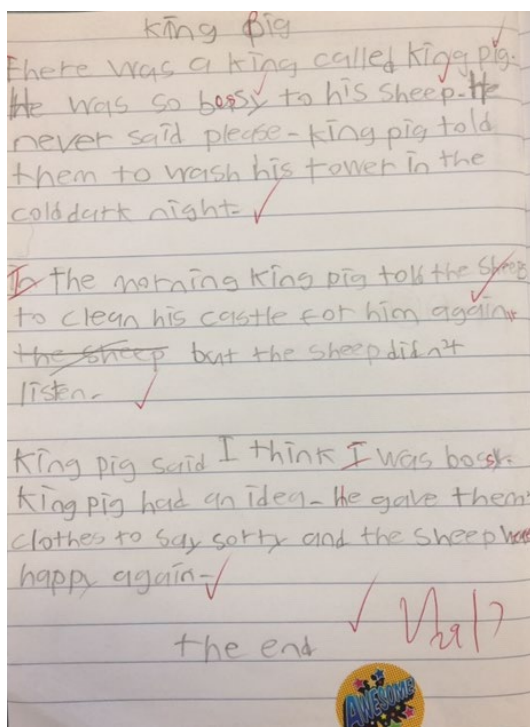 King pig
there was a king called King pig.
He was so bossy to his sheep. He
never said please. King pig told
them to wash his tower in the
cold dark night.
In the morning King pig told the sheep
to clean his castle for him again
the sheep but the sheep didn't
listen.
King pig said I think I was bossy.
King pig had an idea. He gave them
clothes to say sorry and the sheep was
happy again.
the end
AWESOME